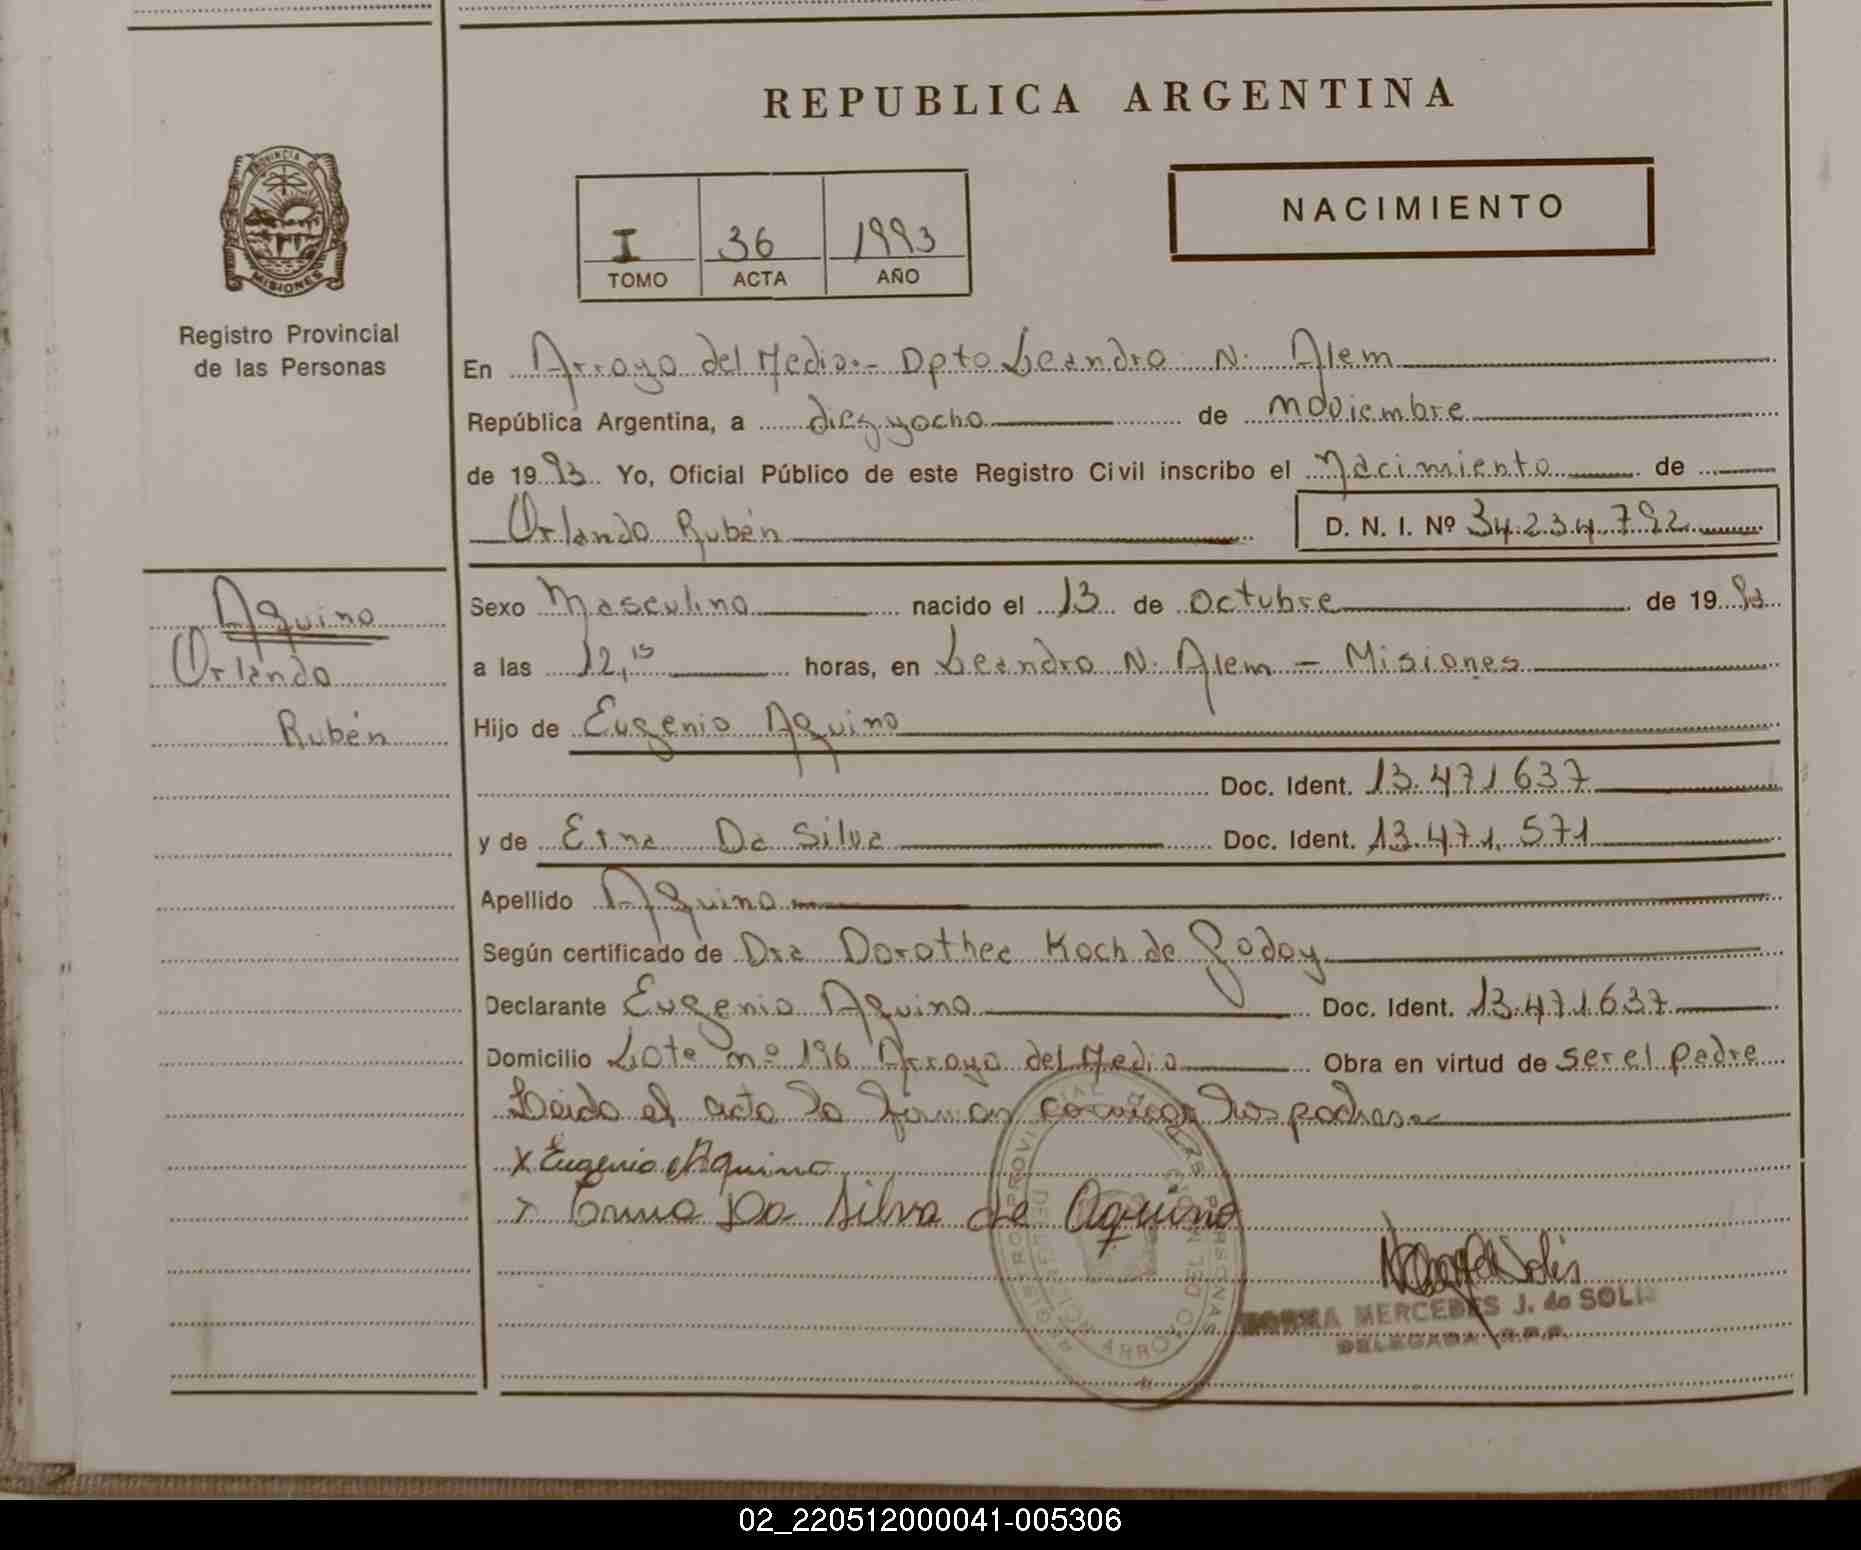 REPUBLICA ARGENTINA
PROVINCIA DE
MISIONES
Registro Provincial
de las Personas
I 36 1993
TOMO ACTA AÑO
NACIMIENTO
En Arroyo del Medio.- Dpto Leandro N. Alem
República Argentina, a diez y ocho de noviembre
de 1993 Yo, Oficial Público de este Registro Civil inscribo el Nacimiento de
Orlando Rubén D. N. I. Nº 34.234.792
Aquino
Orlando
Rubén
Sexo Masculino nacido el 13 de Octubre de 1993
a las 12,15 horas, en Leandro N. Alem - Misiones
Hijo de Eugenio Aquino
Doc. Ident. 13.471.637
y de Erna Da Silva Doc. Ident. 13.471.571
Apellido Aquino
Según certificado de Dra Dorothea Koch de Godoy
Declarante Eugenio Aquino Doc. Ident. 13.471.637
Domicilio Lote nº 196 Arroyo del Medio Obra en virtud de ser el padre
Leido el acta la firman conmigo los padres
x Eugenio Aquino
x Erna Da Silva de Aquino
NORMA MERCEDES J. de SOLIS
DELEGADA R.P.P.
02_220512000041-005306